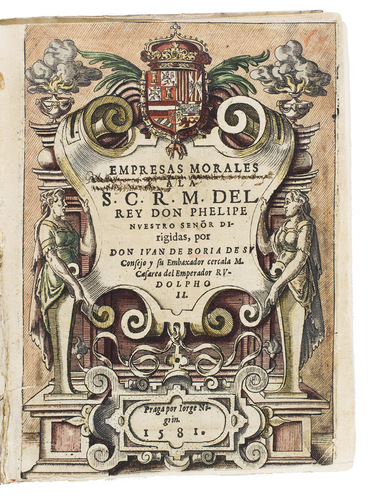 EMPRESAS MORALES
A LA
S. C. R. M. DEL
REY DON PHELIPE
NVESTRO SEÑOR DI-
rigidas, por
DON IVAN DE BORIA DE SV
Consejo y su Embaxador cercala M.
Cæsarea del Emperador RV-
DOLPHO
II.
Praga por Iorge Ni-
grin.
1581.